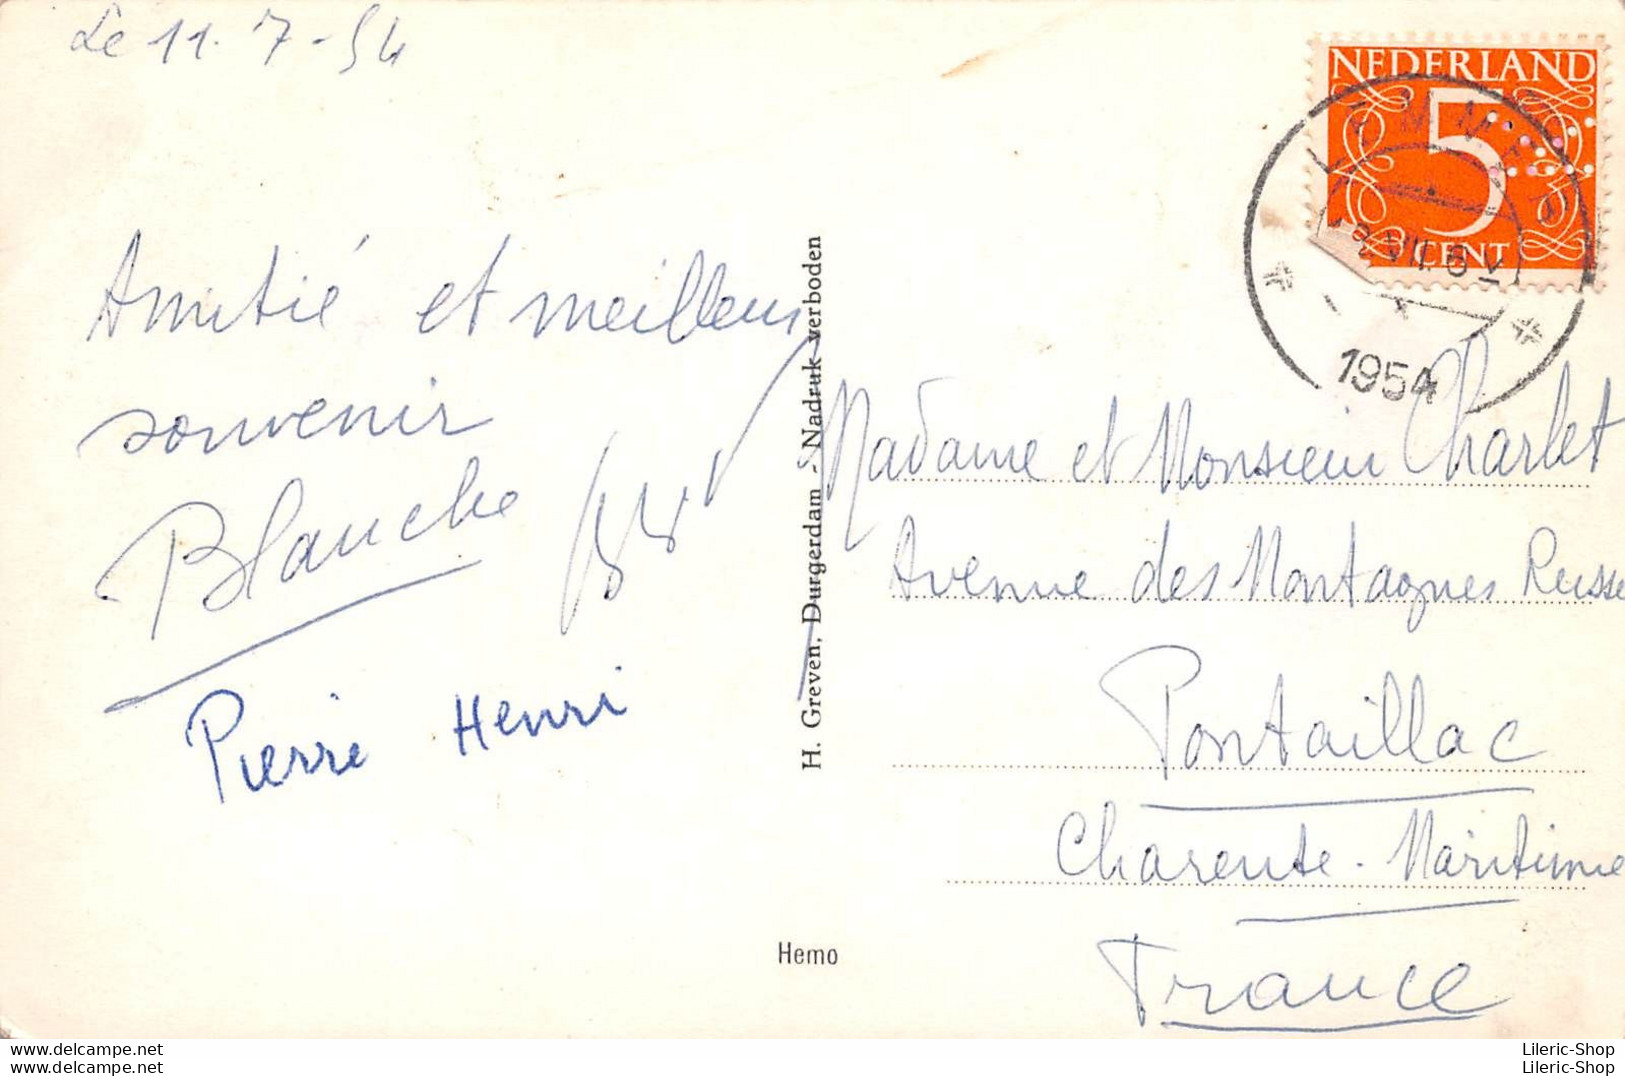 Le 11.7-54
Amitié et meilleur
souvenir
Blanche
Pierre Henri
H. Greven, Durgerdam - Nadruk verboden
Hemo
NEDERLAND
5
CENT
LEMMER
VII.
1954
Madame et Monsieur Charlet
Avenue des Montagnes Russe
Pontaillac
Charente-Maritime
France
www.delcampe.net
www.delcampe.net
Lileric-Shop
Lileric-Shop